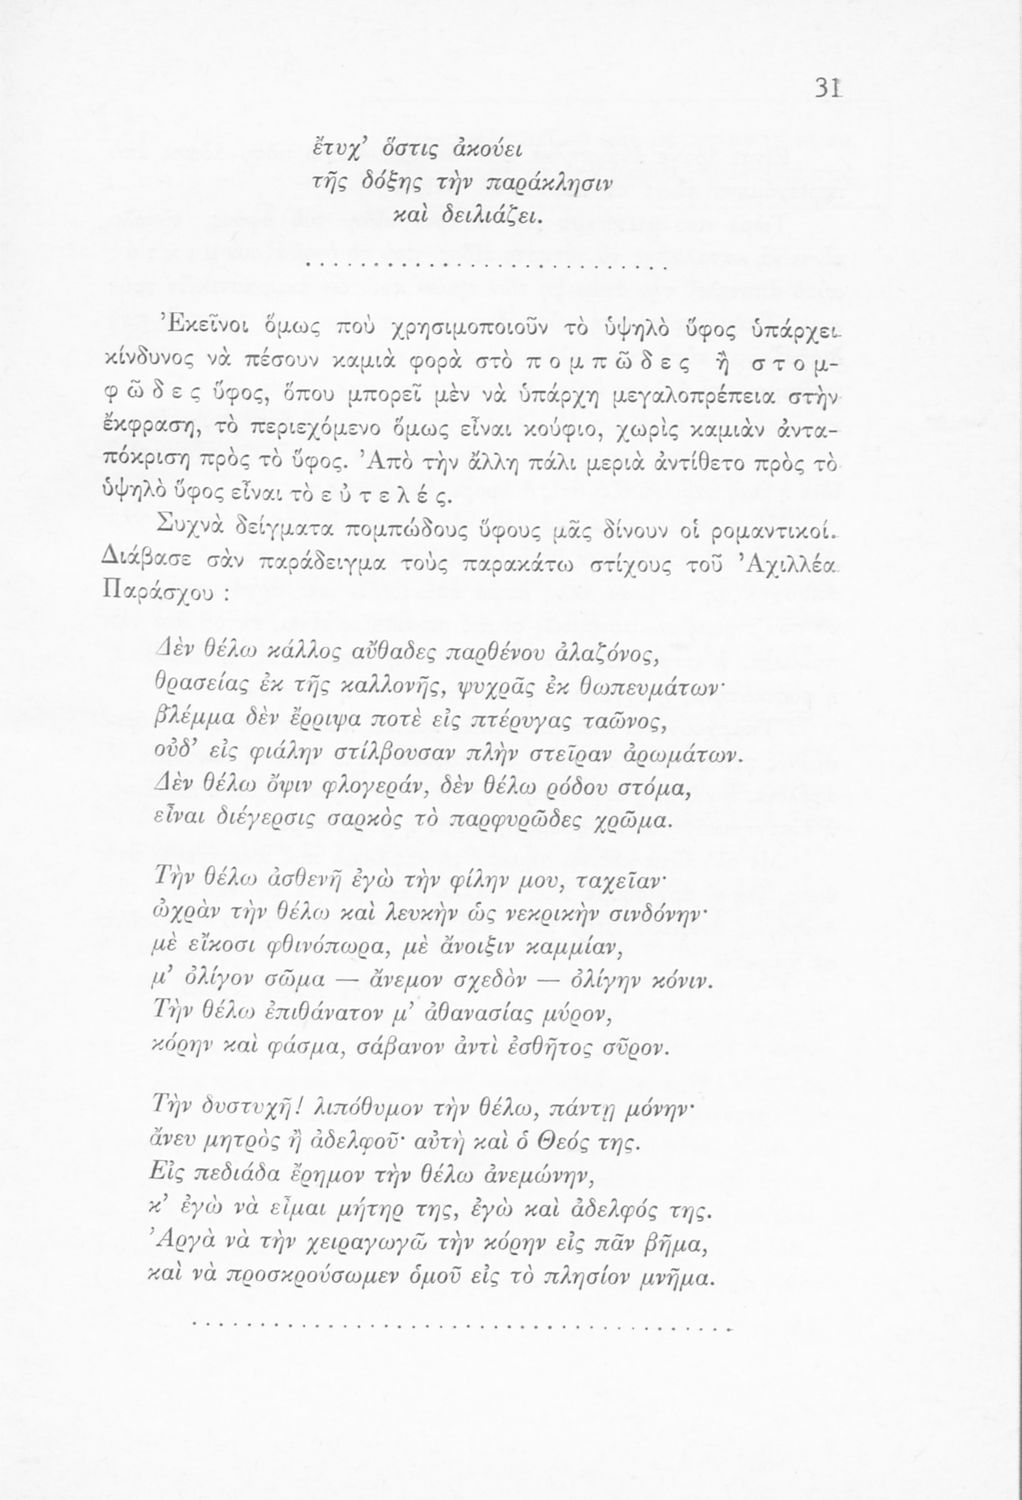 31
ἔτυχ’ ὅστις ἀκούει
τῆς δόξης τὴν παράκλησιν
καὶ δειλιάζει.
. . . . . . . . . . . . . . . . . . . . . . . . . . .
Ἐκεῖνοι ὅμως ποὺ χρησιμοποιοῦν τὸ ὑψηλὸ ὕφος ὑπάρχει
κίνδυνος νὰ πέσουν καμιὰ φορὰ στὸ π ο μ π ῶ δ ε ς ἢ σ τ ο μ-
φ ῶ δ ε ς ὕφος, ὅπου μπορεῖ μὲν νὰ ὑπάρχη μεγαλοπρέπεια στὴν
ἔκφραση, τὸ περιεχόμενο ὅμως εἶναι κούφιο, χωρὶς καμιὰν ἀντα-
πόκριση πρὸς τὸ ὕφος. Ἀπὸ τὴν ἄλλη πάλι μεριὰ ἀντίθετο πρὸς τὸ
ὑψηλὸ ὕφος εἶναι τὸ ε ὐ τ ε λ έ ς.
Συχνὰ δείγματα πομπώδους ὕφους μᾶς δίνουν οἱ ρομαντικοί.
Διάβασε σὰν παράδειγμα τοὺς παρακάτω στίχους τοῦ Ἀχιλλέα
Παράσχου :
Δὲν θέλω κάλλος αὔθαδες παρθένου ἀλαζόνος,
θρασείας ἐκ τῆς καλλονῆς, ψυχρᾶς ἐκ θωπευμάτων·
βλέμμα δὲν ἔρριψα ποτὲ εἰς πτέρυγας ταῶνος,
οὐδ’ εἰς φιάλην στίλβουσαν πλὴν στεῖραν ἀρωμάτων.
Δὲν θέλω ὄψιν φλογεράν, δὲν θέλω ρόδου στόμα,
εἶναι διέγερσις σαρκὸς τὸ παρφυρῶδες χρῶμα.
Τὴν θέλω ἀσθενῆ ἐγὼ τὴν φίλην μου, ταχεῖαν·
ὠχρὰν τὴν θέλω καὶ λευκὴν ὡς νεκρικὴν σινδόνην·
μὲ εἴκοσι φθινόπωρα, μὲ ἄνοιξιν καμμίαν,
μ’ ὀλίγον σῶμα — ἄνεμον σχεδὸν — ὀλίγην κόνιν.
Τὴν θέλω ἐπιθάνατον μ’ ἀθανασίας μύρον,
κόρην καὶ φάσμα, σάβανον ἀντὶ ἐσθῆτος σῦρον.
Τὴν δυστυχῆ! λιπόθυμον τὴν θέλω, πάντῃ μόνην·
ἄνευ μητρὸς ἢ ἀδελφοῦ· αὐτὴ καὶ ὁ Θεός της.
Εἰς πεδιάδα ἔρημον τὴν θέλω ἀνεμώνην,
κ’ ἐγὼ νὰ εἶμαι μήτηρ της, ἐγὼ καὶ ἀδελφός της.
Ἀργὰ νὰ τὴν χειραγωγῶ τὴν κόρην εἰς πᾶν βῆμα,
καὶ νὰ προσκρούσωμεν ὁμοῦ εἰς τὸ πλησίον μνῆμα.
. . . . . . . . . . . . . . . . . . . . . . . . . . . . . . . . . . . . . . .